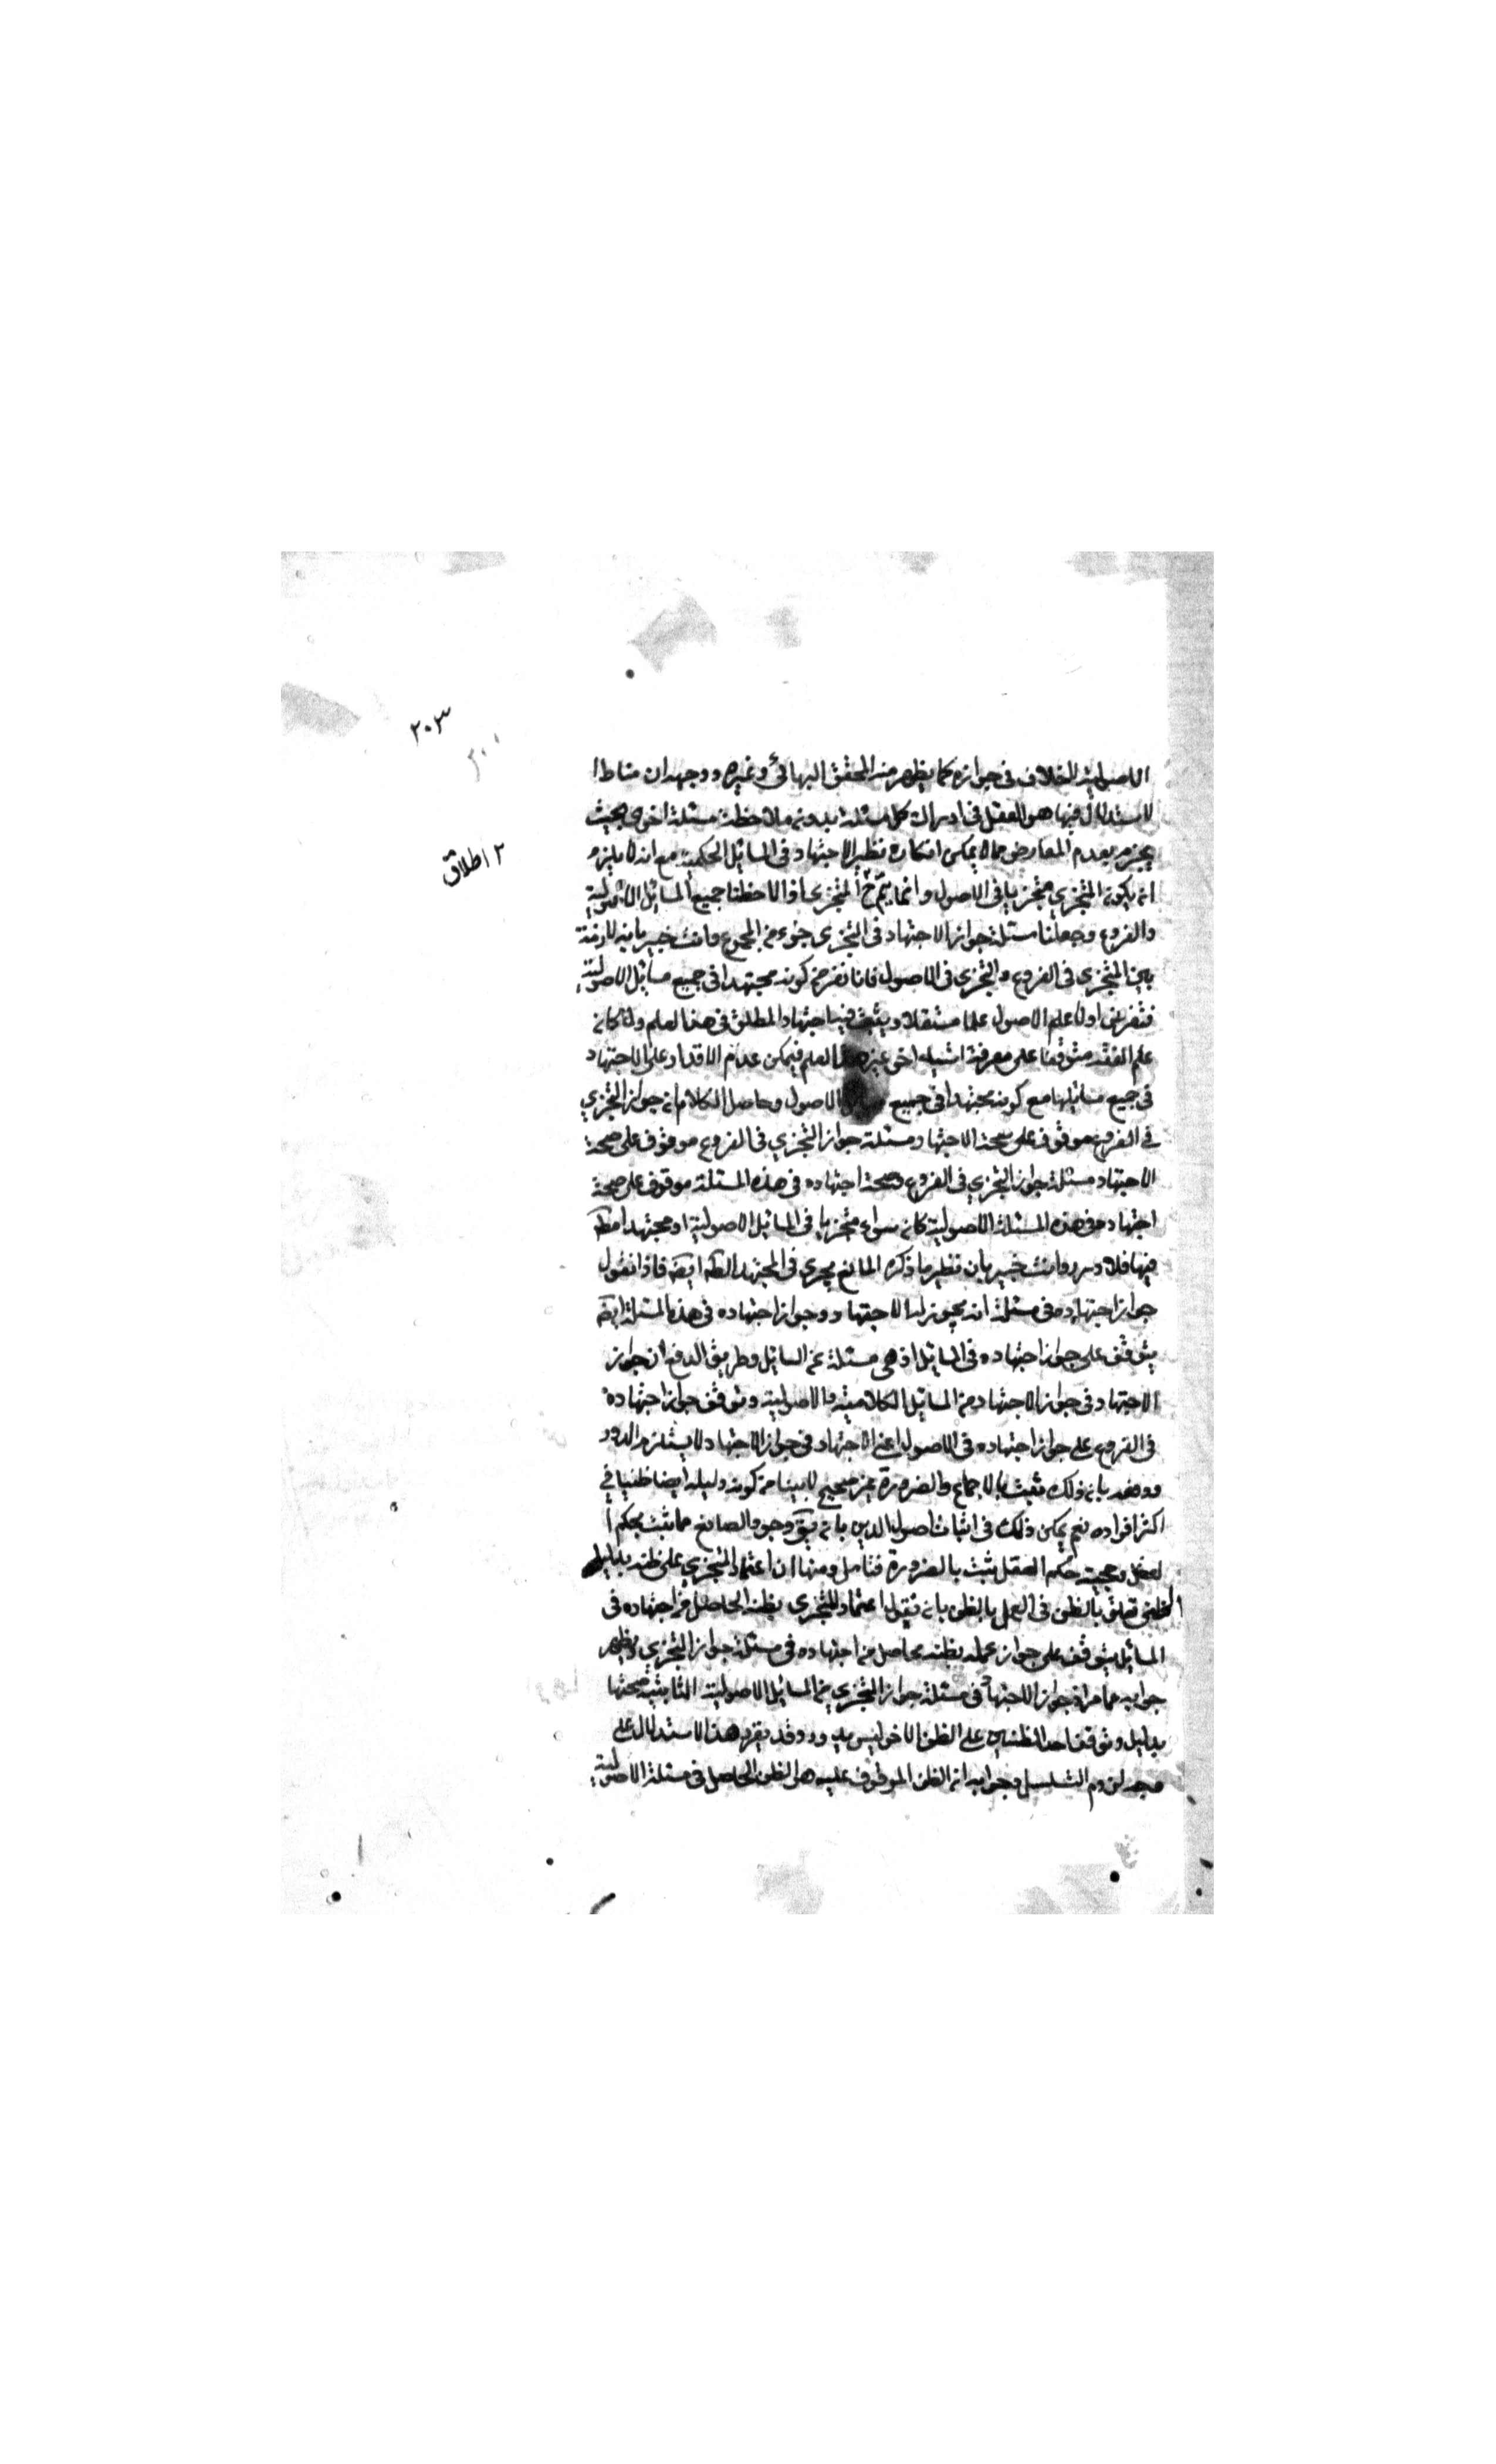 ٢٠٣
٢٠٠
الاصولية لاخلاف فى جوازه كما يظهر من المحقق البهائى وغيره ووجهه ان مناط ا
لاستدلال فيها هو العقل فى ادراك كل مسئلة بدون ملاحظة مسئلة اخرى بحيث
يجزم بعدم المعارض مما لا يمكن انكاره نظير الاجتهاد فى المسائل الحكمية مع انه لا يلزم
٢ اطلاق
ان يكون المتجزى متجزيا فى الاصول وانما يتم ح المتجزى اذا لاحظنا جميع المسائل الاصولية
والفروع وجعلنا مسئلة جواز الاجتهاد فى التجزى جزء من المجموع وانت خبير بانه لا
بين المتجزى فى الفروع والتجزى فى الاصول فانا نفرض كونه مجتهدا فى جميع مسائل الاصولية
فنفرض اولا علم الاصول علما مستقلا ويثبت فيه اجتهاد المطلق فى هذا العلم ولما كان
علم الفقه متوقفا على معرفة اشياء اخر غير هذا العلم فيمكن عدم الاقتدار على الاجتهاد
فى جميع مسائلها مع كونه مجتهدا فى جميع مسائل الاصول وحاصل الكلام ان جواز التجزي
فى الفروع موقوف على صحة الاجتهاد مسئلة جواز التجزي فى الفروع موقوف على صحة
الاجتهاد مسئلة جواز التجزي فى الفروع وصحة اجتهاده فى هذه المسئلة موقوف على صحة
اجتهاده فى هذه المسئلة الاصولية كان سواء متجزيا فى المسائل الاصولية او مجتهدا مطلقا
فيها فلا دور وانت خبير بان نظير ما ذكره المانع يجرى فى المجتهد المط ايضا فاذا نقول
جواز اجتهاده فى مسئلة انه يجوز له الاجتهاد وجواز اجتهاده فى هذه المسئلة ايضا
يتوقف على جواز اجتهاده فى المسائل اذ هى مسئلة من المسائل وطريق الدفع ان جواز
الاجتهاد فى جواز الاجتهاد من المسائل الكلامية والاصولية وتوقف جواز اجتهاده
فى الفروع على جواز اجتهاده فى الاصول اعنى الاجتهاد فى جواز الاجتهاد لا يستلزم الدور
ودفعه بان ذلك يثبت بالاجماع والضرورة غير صحيح لما بينا من كون دليله ايضا ظنيا فى
اكثر افراده نعم يمكن ذلك فى اثبات اصول الدين بان يق وجود الصانع مما ثبت بحكم ا
لعقل وحجية حكم العقل ثبت بالضرورة فتامل ومنها ان اعتماد المتجزي على ظنه بدليل
الظنى تعلق بالظن فى العمل بالظن بان نقول اعتماد المتجزي بظنه الحاصل من اجتهاده فى
المسائل يتوقف على جواز عمله بظنه حاصل من اجتهاده فى مسئلة جواز التجزي ويظهر
جوابه مما مر اذ جواز الاجتهاد فى مسئلة جواز التجزي من المسائل الاصولية الثابتة صحتها
بدليل وتوقف احد الظنين على الظن الاخر ليس بدور وقد يقرر هذا الاستدلال على
وجه لزوم التسلسل وجوابه ان الظن الموقوف عليه هو الظن الحاصل فى مسئلة الاصولية